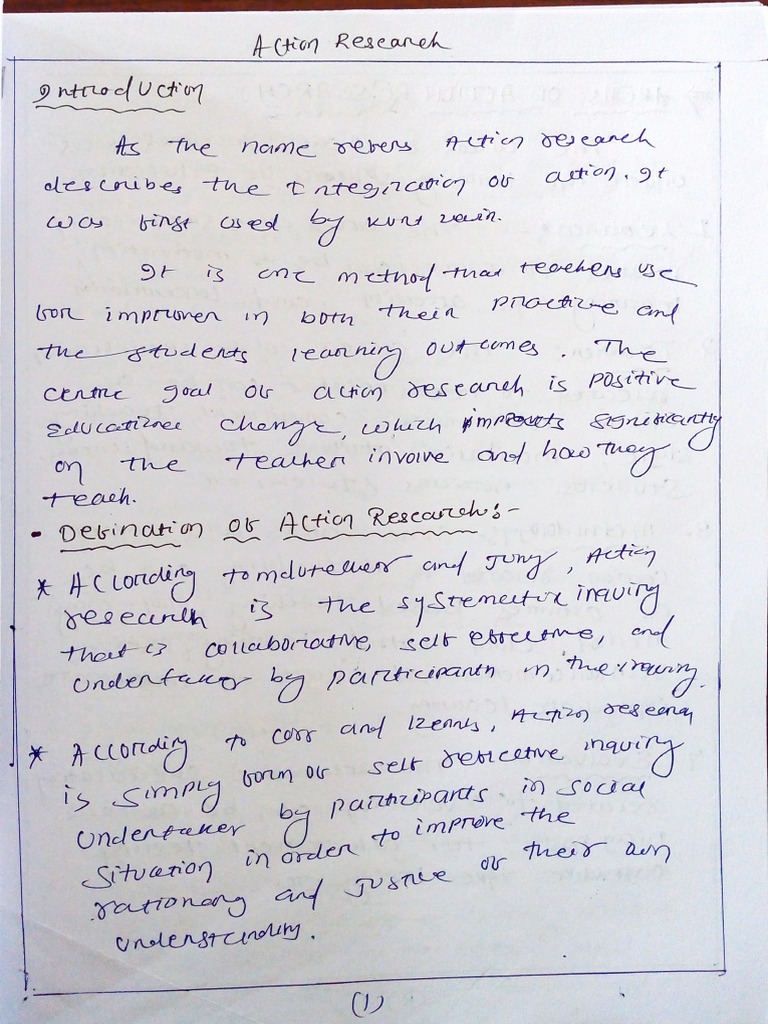 Action Research
Introduction
As the name refers Action research
describes the Integration of action. It
was first used by Kurt
It is one method that teachers use
for improver in both their practive and
the students learning outcomes. The
centre goal of action research is positive
educational change, which impacts significantly
on the teacher involve and how they
teach.
• Defination of Action Research:-
* According to and Jung, Action
research is the systematic inquiry
that is collaborative, self and
undertaker by participants in the inquiry.
* According to Carr and Action research
is simply form of self reflective inquiry
undertaker by participants in social
situation in order to improve the
and justice of their own
understanding.
(1)